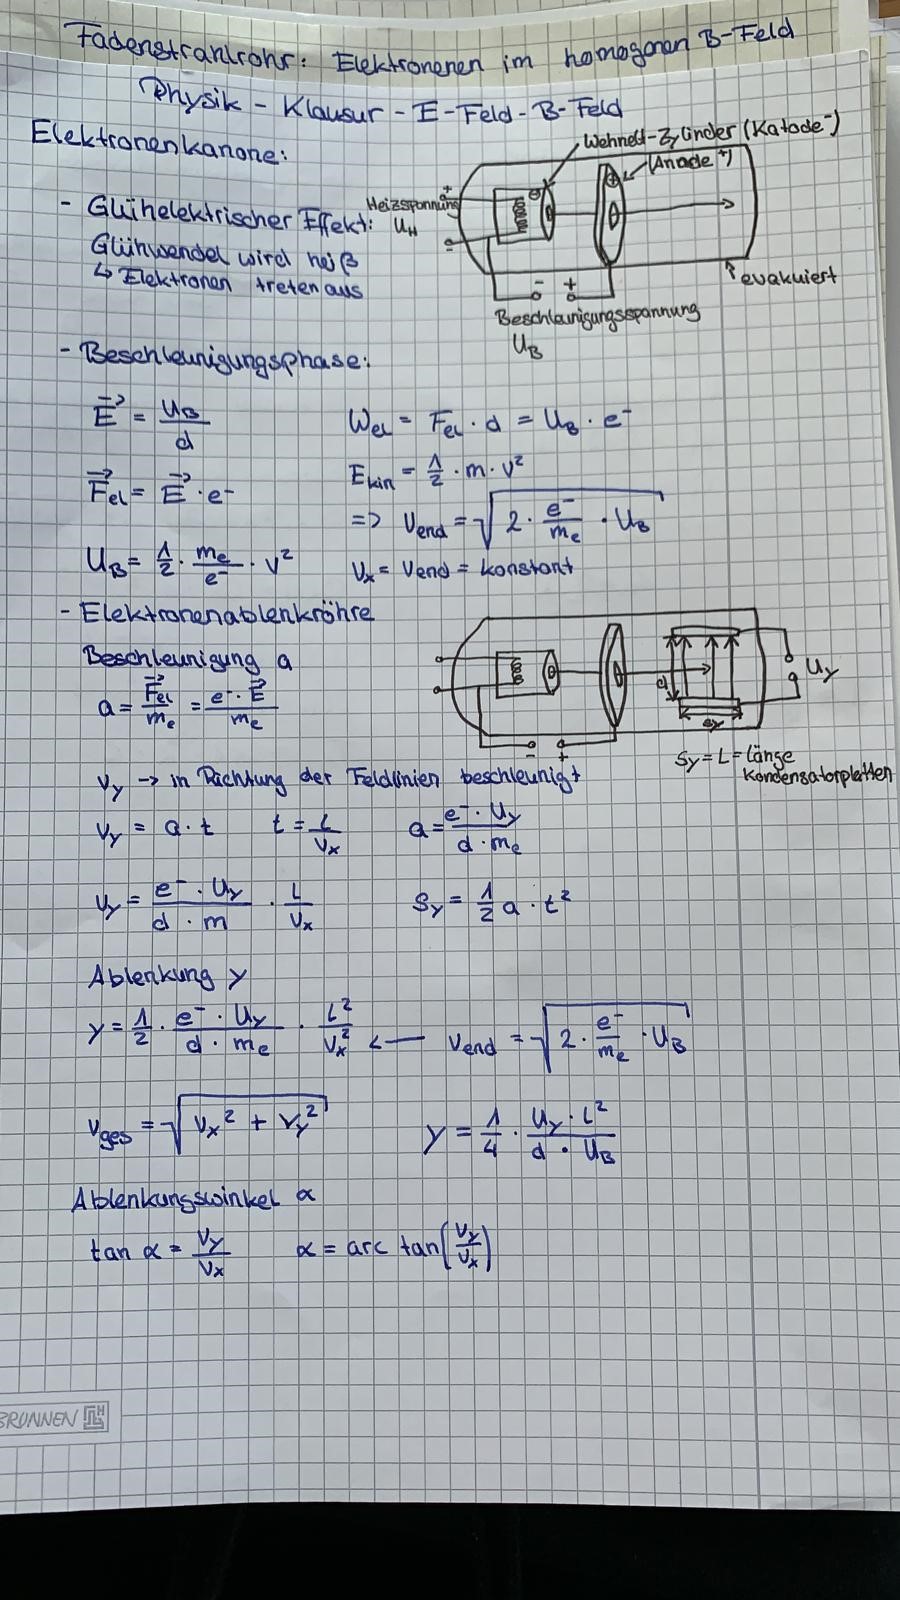 Fadenstrahlrohr: Elektronenen im homogenen B-Feld
Physik - Klausur - E-Feld - B-Feld
Elektronenkanone:
Wehnelt-Zylinder (Katode⁻)
(Anode⁺)
- Glühelektrischer Effekt:
Heizspannung
U_H
+
-
Glühwendel wird heiß
↳ Elektronen treten aus
- +
↑ evakuiert
Beschleunigungsspannung
U_B
- Beschleunigungsphase:
E⃗ = U_B / d
W_el = F_el · d = U_B · e⁻
F⃗_el = E⃗ · e⁻
E_kin = 1/2 · m · v²
=> v_end = √(2 · e⁻/m_e · U_B)
U_B = 1/2 · m_e/e⁻ · v²
v_x = v_end = konstant
- Elektronenablenkröhre
Beschleunigung a
a = F⃗_el / m_e = e⁻ · E⃗ / m_e
d
s_y
U_y
- +
s_y = L = länge
Kondensatorplatten
v_y -> in Richtung der Feldlinien beschleunigt
v_y = a · t t = L / v_x a = e⁻ · U_y / d · m_e
v_y = e⁻ · U_y / d · m · L / v_x s_y = 1/2 a · t²
Ablenkung y
y = 1/2 · e⁻ · U_y / d · m_e · L² / v_x² <— v_end = √(2 · e⁻/m_e · U_B)
v_ges = √(v_x² + v_y²) y = 1/4 · U_y · L² / d · U_B
Ablenkungswinkel α
tan α = v_y / v_x α = arc tan(v_y / v_x)
BRUNNEN